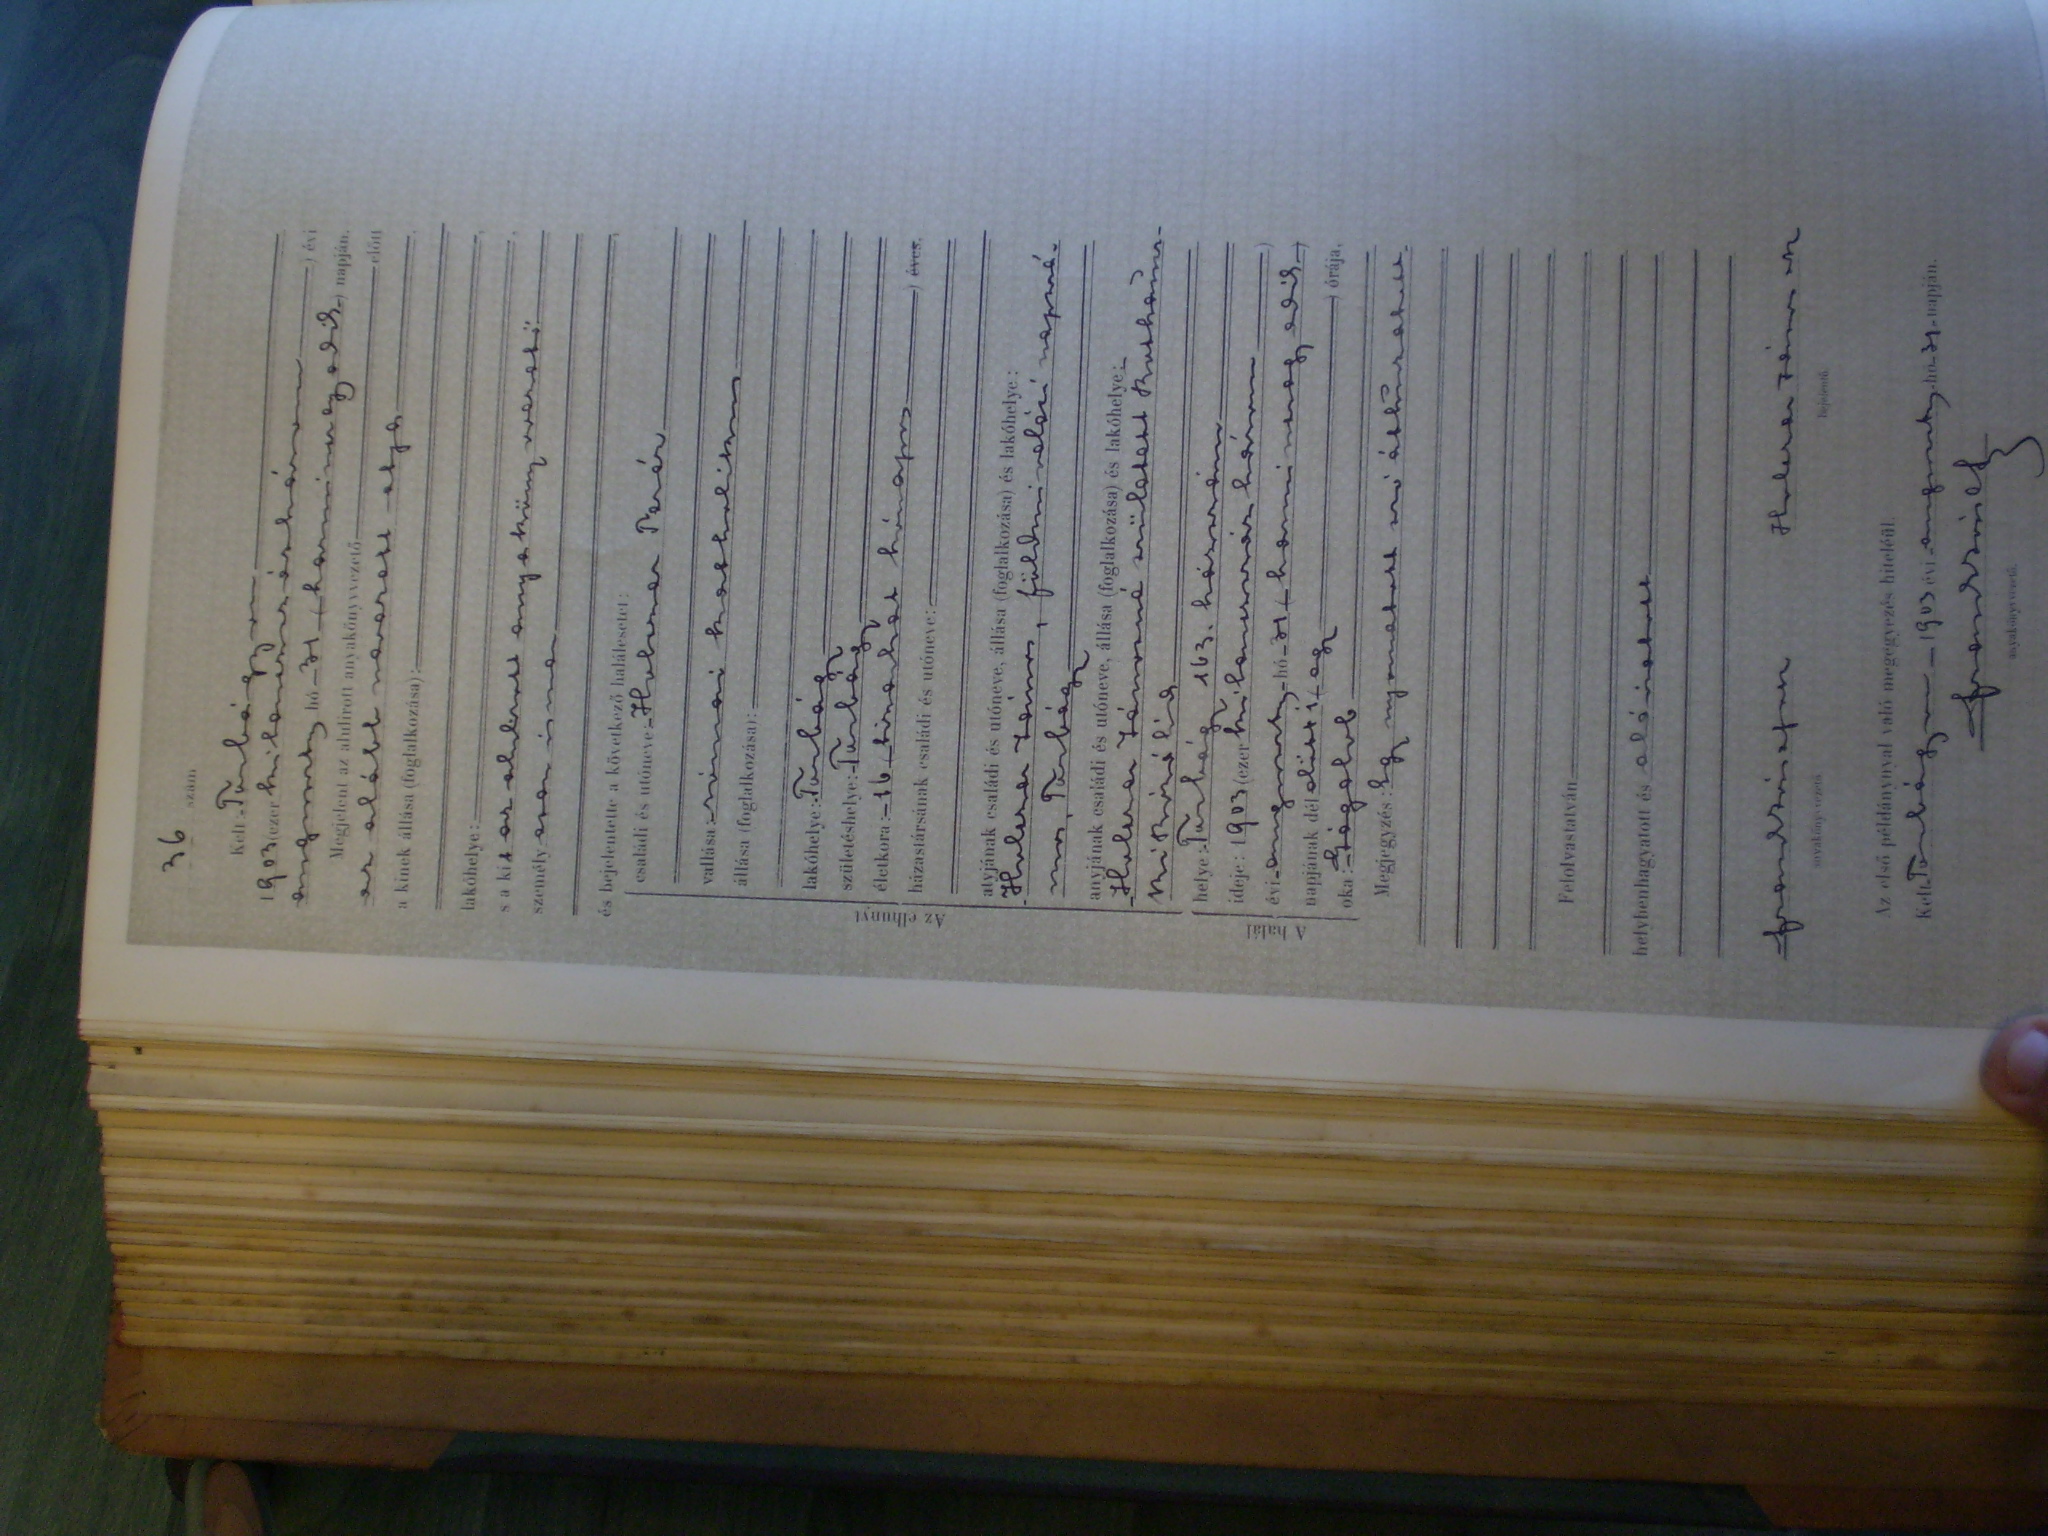 36 szám
Kelt: Tarbágyon
1903 (ezer kilencszázhárom) évi
augusztus hó 31 (harminczegyedik) napján.
Megjelent az alulirott anyakönyvvezető előtt
az alább nevezett atya
a kinek állása (foglalkozása):
lakóhelye:
s a kit az alulirt anyakönyvvezető
személyesen ismer
és bejelentette a következő halálesetet:
családi és utóneve: Huberer Teréz
vallása: római katholikus
állása (foglalkozása):
lakóhelye:
születéshelye:
életkora: 16 (tizenhat hónapos) éves.
házastársának családi és utóneve:
Az elhunyt
atyjának családi és utóneve, állása (foglalkozása) és lakóhelye:
János, földmivelési napszá-
mos,
anyjának családi és utóneve, állása (foglalkozása) és lakóhelye:
Jánosné született
helye: 163. házszám
ideje: 1903 (ezer kilencszázhárom)
évi augusztus hó 31 (harminczegyedik)
napjának dél előtti egy órája.
oka:
A halál
Megjegyzés: Egy nyomtatott szó áthúzatott.
Felolvastatván
helybenhagyatott és aláiratott
János
anyakönyvvezető
bejelentő.
Az első példánynyal való megegyezés hiteléül.
Kelt 1903 évi augusztus hó 31 napján.
anyakönyvvezető.